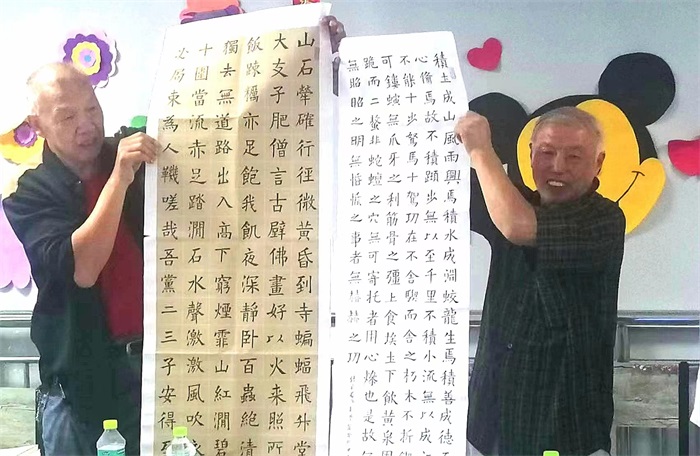 積土成山風雨興焉積水成淵蛟龍生焉積善成德
心備焉故不積蹞步無以至千里不積小流無以成江
不能十步駑馬十駕功在不舍鍥而舍之朽木不折
可鏤螾無爪牙之利筋骨之彊上食埃土下飲黃泉
跪而二螯非蛇蟺之穴無可寄托者用心燥也是故
無昭昭之明無惛惛之事者無赫赫之功
山石犖確行徑微黃昏到寺蝙蝠飛升堂
大支子肥僧言古壁佛畫好以火來照所
飯疎糲亦足飽我飢夜深靜臥百蟲絕清
獨去無道路出入高下窮煙霏山紅澗碧
十圍當流赤足踏澗石水聲激激風吹衣
必局束為人鞿嗟哉吾黨二三子安得